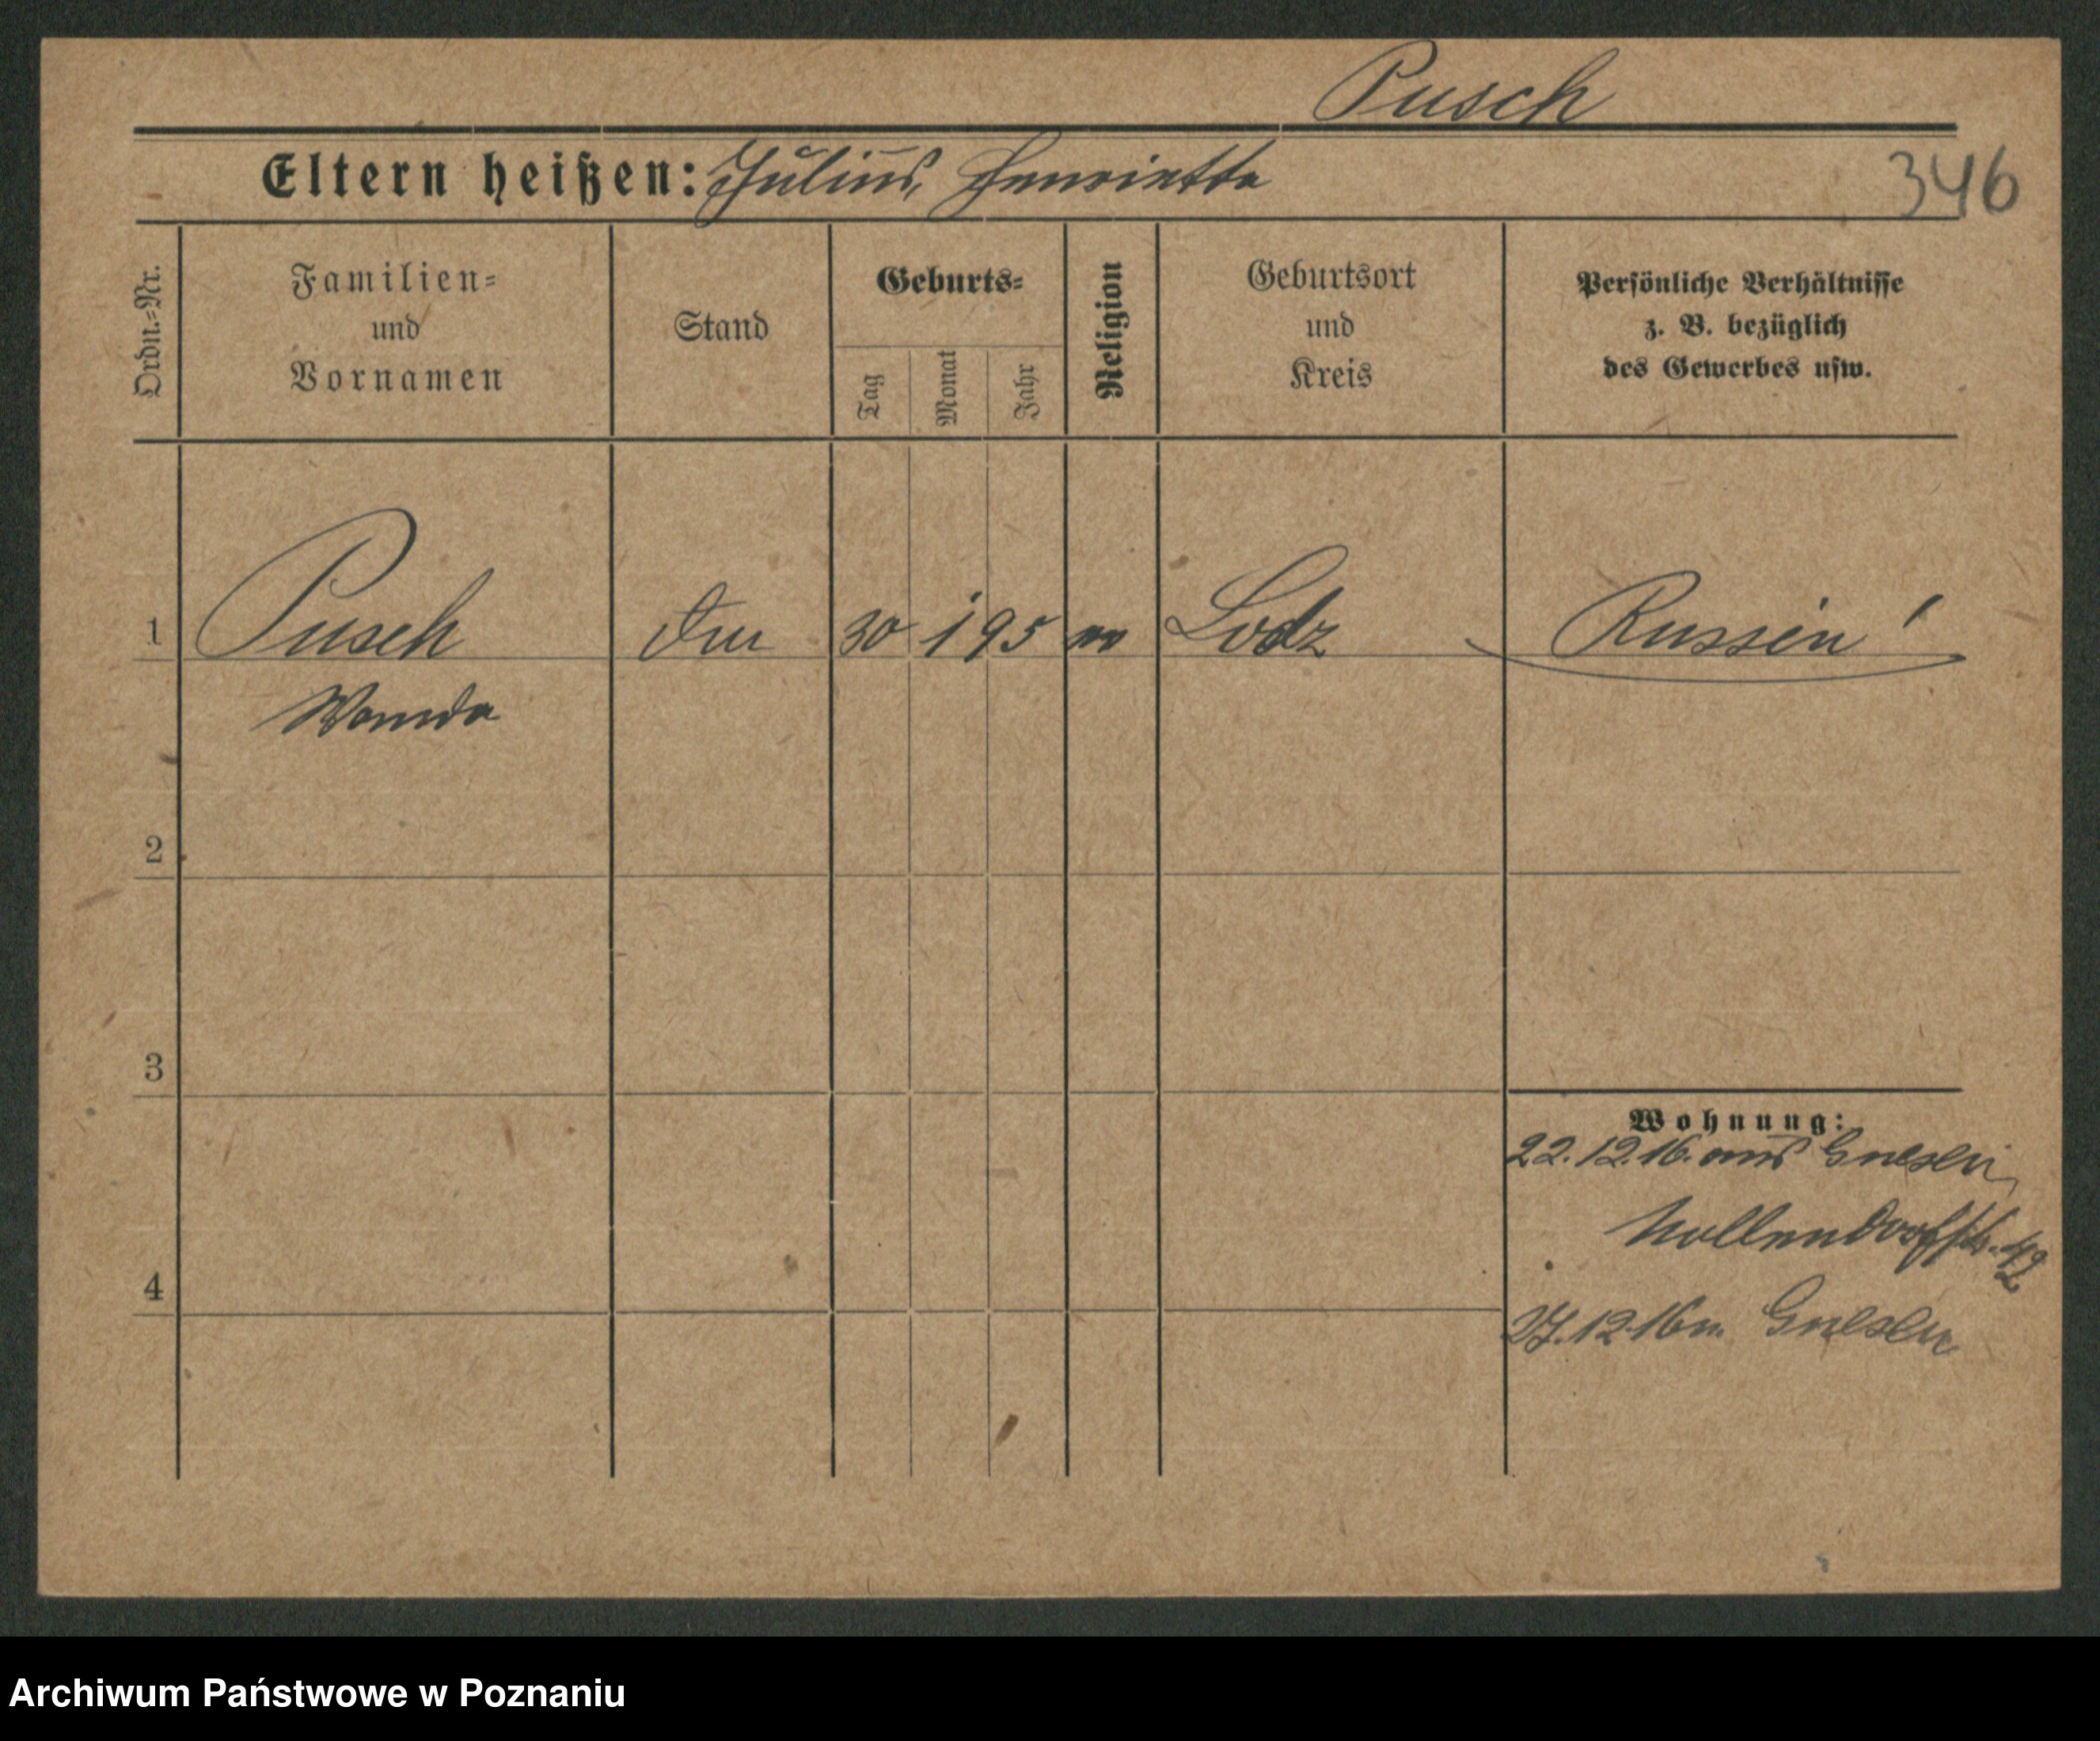 Pusch
Eltern heißen: Julius, Henriette
346
Ordn.-Nr.
Familien-
und
Vornamen
Stand
Geburts-
Tag
Monat
Jahr
Religion
Geburtsort
und
Kreis
Persönliche Verhältnisse
z. B. bezüglich
des Gewerbes usw.
1 Pusch 30 1 95 Lodz Russin!
Wanda
2
3
Wohnung:
22.12.16. aus Gnesen
Nollendorfstr. 42
4
27.12.16 n. Gnesen
Archiwum Państwowe w Poznaniu